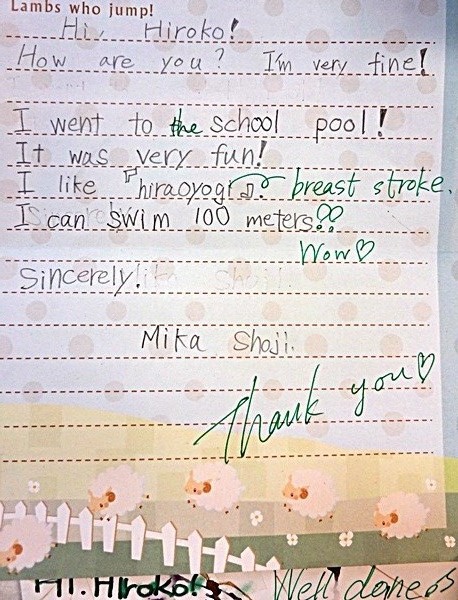 Lambs who jump!
Hi, Hiroko!
How are you? I'm very fine!
I went to the school pool!
It was very fun!
I like 『hiraoyogi』. breast stroke.
I can swim 100 meters!!
Wow♡
Sincerely!
Mika Shoji.
Thank you♡
Hi. Hiroko! Well done